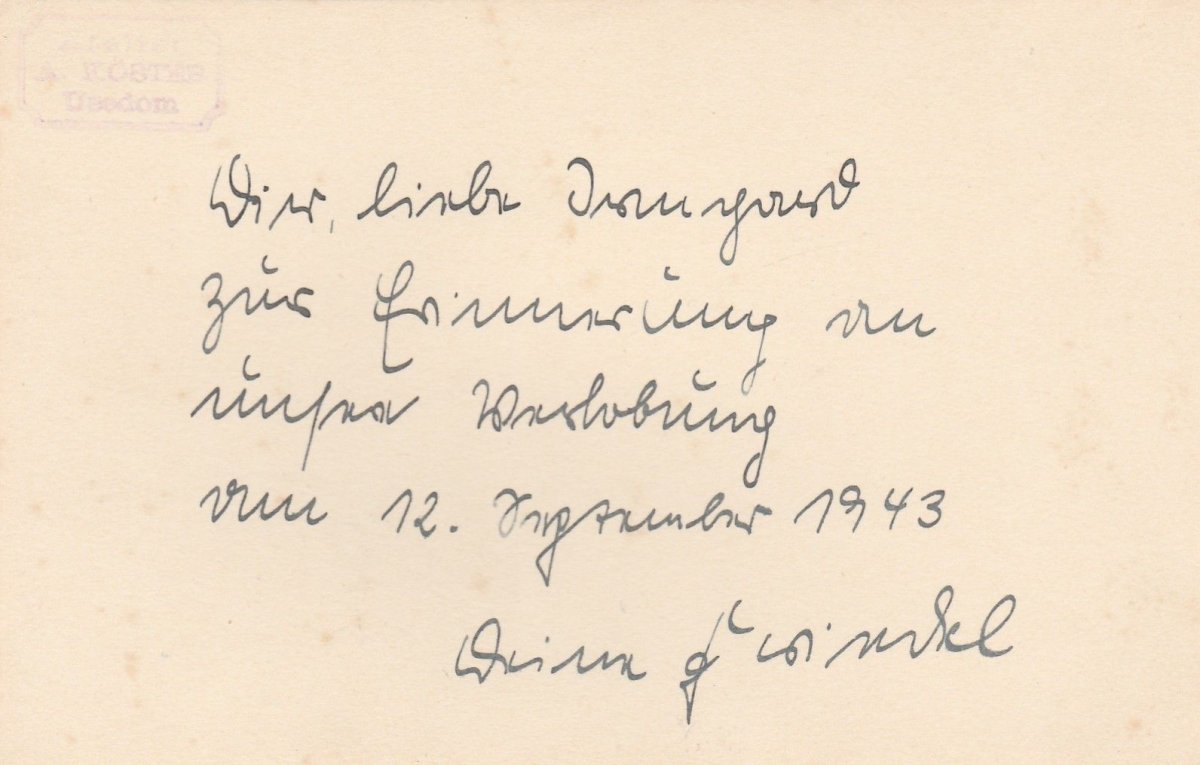 A. KÖSTER
Usedom
Dir, liebe Irmgard
zur Erinnerung an
unsre Verlobung
am 12. September 1943
Deine Friedel